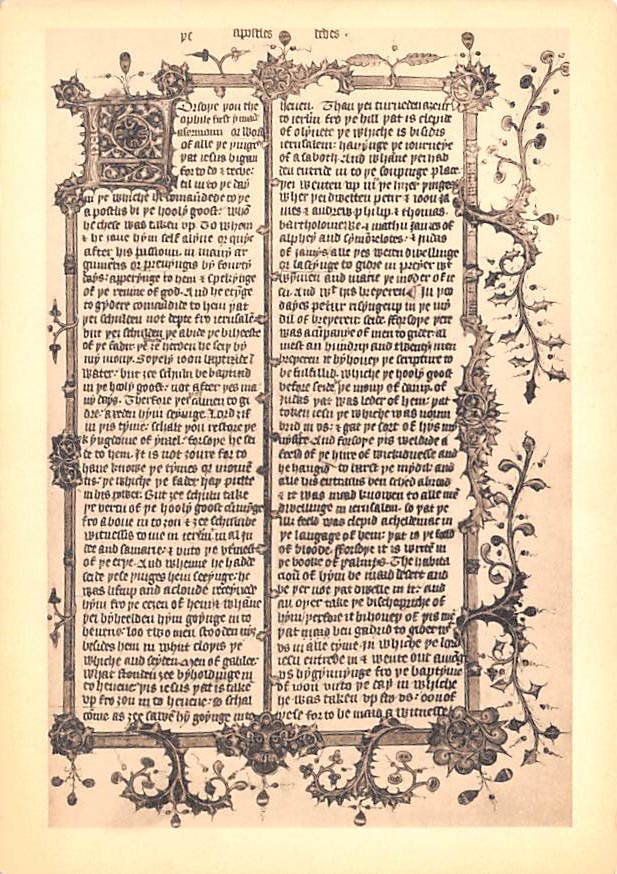 þe apostles dedes ·
Drsoþe you the
ophile first y maad
a sermoun of alle
of alle þe þinges
þat iesus bigan
for to do & teche:
til in to þe day
in þe whiche he comaundede to þe
apostlis bi þe hooly goost: who
he chese was taken vp. To whom
& he ȝaue hym self alyue or quyc
after his passioun. in many ar
gumens or preuyngis by fourty
days: apperynge to hem & spekynge
of þe reume of god. And he etynge
to gydere comaundide to hem þat
þei schulden not depte fro ierusalē
but þei schulden þe abide þe biheeste
of þe fadir
my mouþ. Soþely ioon baptizide ī
water: but ȝee schuln be baptised
in þe hooly goost: not after þes ma
ny days. Therfore þei camen to gi
dre: axeden hym seyinge. Lord if
in þis tyme: schalt þou restore þe
kyngdome of ysrael. forsoþe he sei
de to hem. It is not ȝoure for to
haue knowe þe tymes or mouentis
tis: þe whiche þe fader haþ putte
in his power. But ȝee schuln take
þe vertu of þe hooly goost comynge
fro aboue in to ȝou & ȝee schuln be
witnessis to me in ierusalem in al ju
dee and samarie: & vnto þe vtmest
of þe erþe. And whenne he hadde
seide þese þinges hem seeynge: he
was liftup and a cloude receyued
hym fro þe eeyen of hem & whane
þei byheelden hym goynge in to
heuene: loo two men stooden niȝ
besides hem in whijt cloþis þe
whiche and seyden. Men of galilee:
What stonden ȝee byholdynge in
to heuene: þis iesus þat is take
vp fro ȝou in to heuene: so schal
come as ȝee sawe hȳ goynge into
heuen. Than þei turneden aȝen
to ierlm̄ fro þe hill þat is clepid
of olyuete þe whiche is bisidis
ierusalem: hauynge þe iourneye
of a saboth. And whāne þei had
den entride in to þe soupinge place:
þei wenten vp in þe hiȝer þinges
wher þei dwelten petir & ioon ja
mes & andrew philip & thomas.
bartholomewe & mathu james of
alphey and symō zelotes: & judas
of jamys. alle þes weren dwellinge
or lastynge to gidre in preyer wt̄
wymmen and marie þe moder of ie
su. And wt̄ his breþeren. In þo
dayes petre risyngeup in þe my
dil of breþeren: seide. fforsoþe þere
was a cumpanye of men to gider al
mest an hundrid and twenty men
breþeren it byhoueþ þe scripture to
be fulfillid. whiche þe hooly goost
before seide þe mouþ of dauiþ. of
judas þat was leder of hem: þat
token iesu þe whiche was noum
brid in vs: & gat þe sort of þys my
nystre. And forsoþe þis weldide a
feeld of þe hijre of wickidnesse and
he hangid to barst þe myddil: and
alle his entrailis ben sched abrood
& it was maad knowen to alle men
dwellinge in ierusalem. so þat þe
ilk feeld was clepid acheldemac in
þe langage of hem: þat is þe feeld
of bloode. fforsoþe it is writē in
þe booke of psalmys. The habita
cioū of hym be maad desert and
be þer not þat dwelle in it: and
an oþer take þe bischopriche of
hym/ þerfore it bihoueþ of þis men
þat maad ben gadrid to gider wt̄
vs in alle tyme. in whiche þe lord
iesu entrede in & wente out among
vs bygynnynge fro þe baptyme
of ioon vnto þe day in whiche
he was taken vp fro vs: oon of
þese for to be maad a witnesse